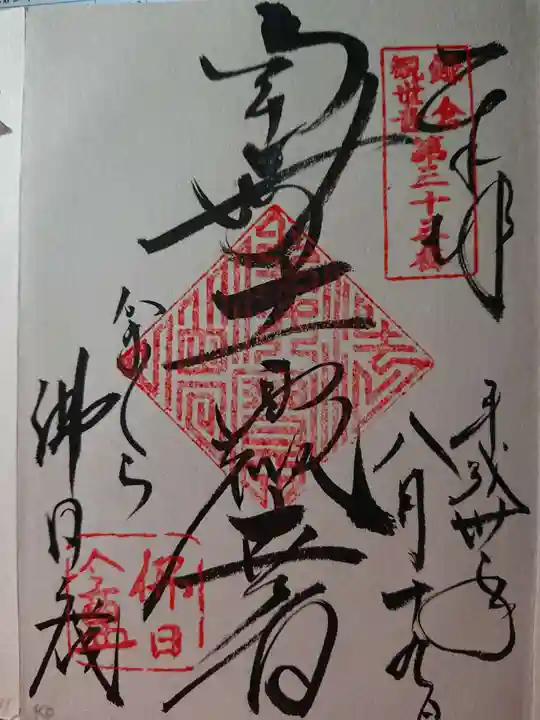 奉拝
鎌倉
観世音
第三十三番
平成卅年
八月十九日
南無十一面観世音
かまくら
佛日庵
佛日